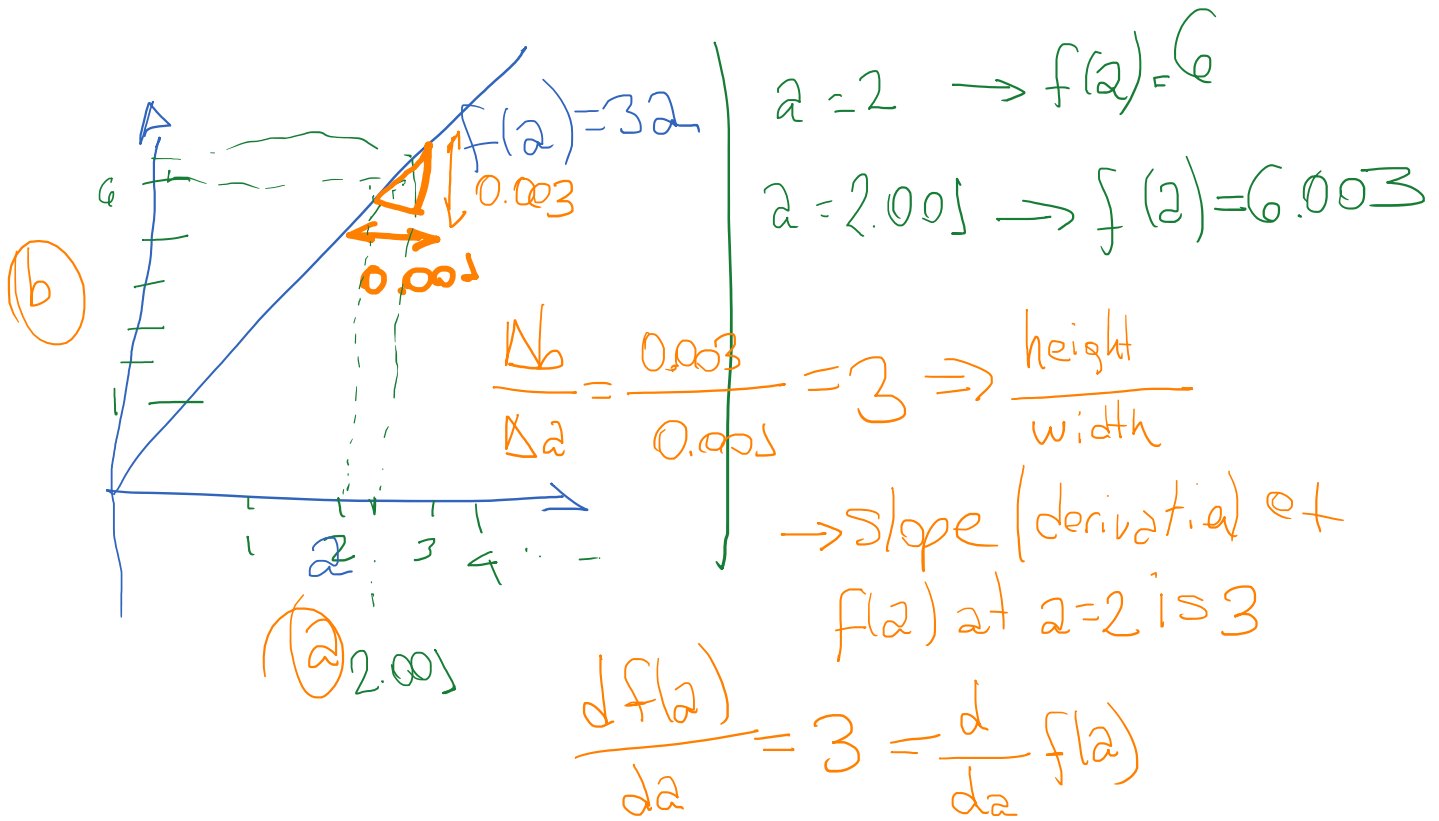 f(a)=3a
6
0.003
0.001
b
1
1 2 3 4 ...
a
a
2.001
a = 2 → f(a) = 6
a = 2.001 → f(a) = 6.003
Δb/Δa = 0.003/0.001 = 3 ⇒ height/width
→ slope (derivatie) of
f(a) at a=2 is 3
df(a)/da = 3 = d/da f(a)